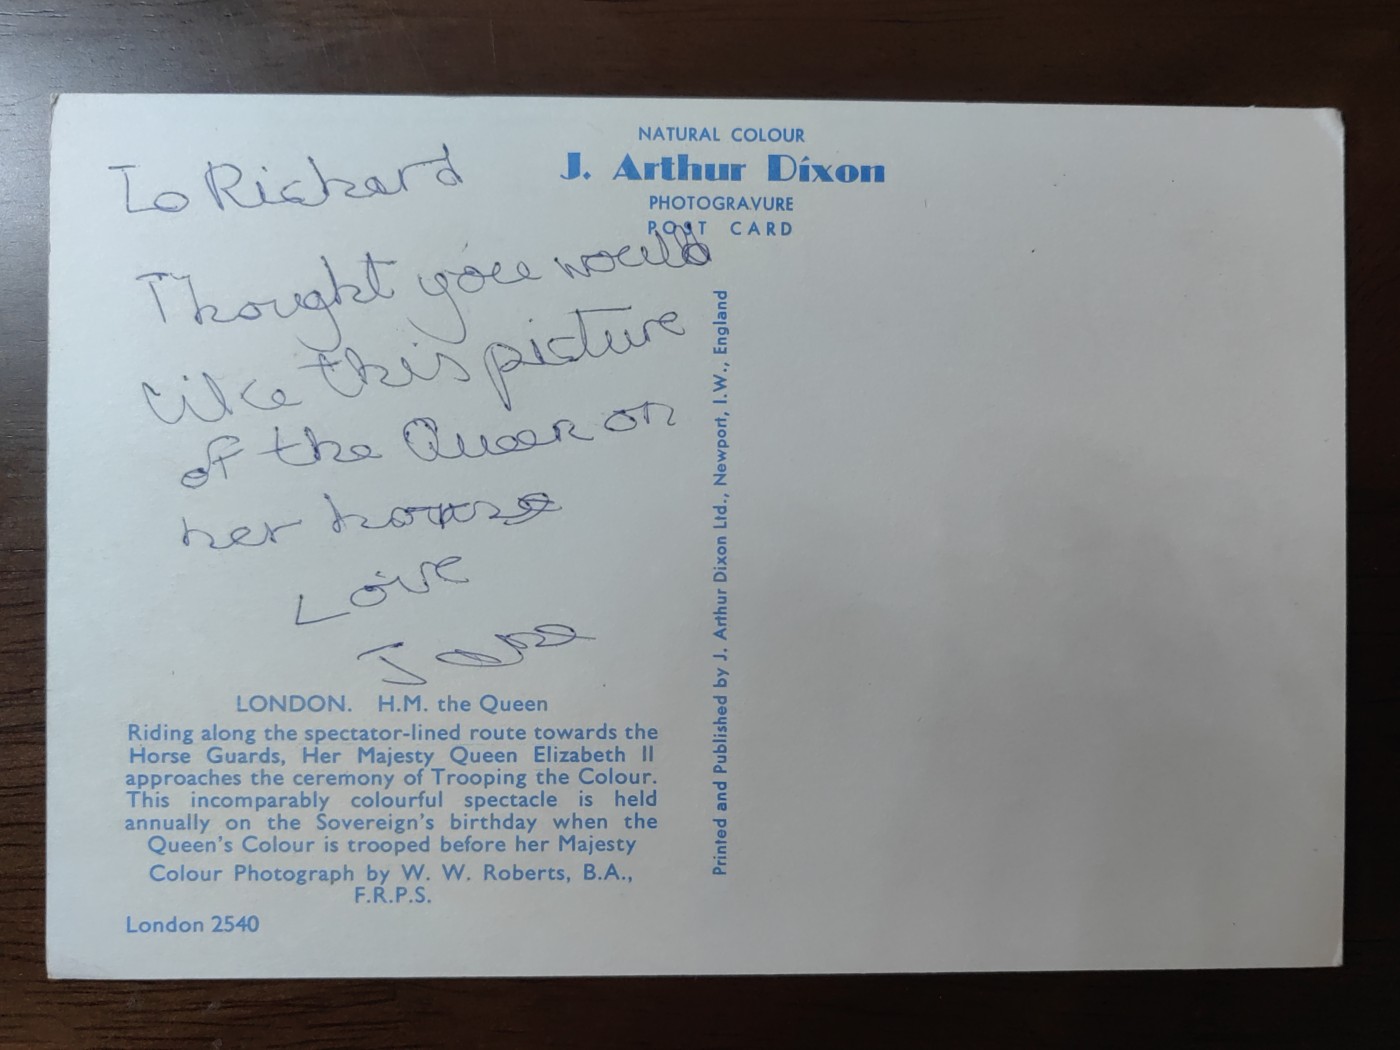 NATURAL COLOUR
J. Arthur Dixon
PHOTOGRAVURE
POST CARD
To Richard
Thought you would
like this picture
of the Queen on
her horse
Love
Jane
LONDON. H.M. the Queen
Riding along the spectator-lined route towards the
Horse Guards, Her Majesty Queen Elizabeth II
approaches the ceremony of Trooping the Colour.
This incomparably colourful spectacle is held
annually on the Sovereign's birthday when the
Queen's Colour is trooped before her Majesty
Colour Photograph by W. W. Roberts, B.A.,
F.R.P.S.
London 2540
Printed and Published by J. Arthur Dixon Ltd., Newport, I.W., England